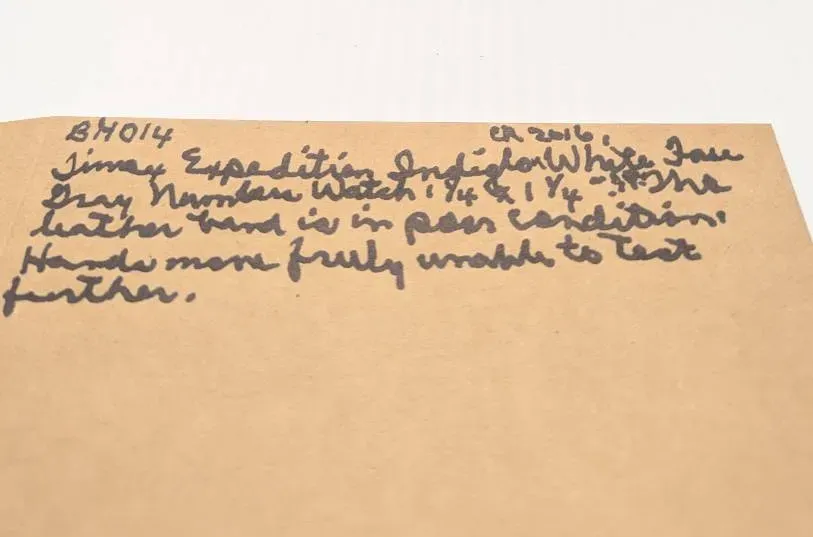 BH014 CR 2016.
Timex Expedition Indiglo White Face
Gray Number Watch 1 1/4 x 1 1/4 The
leather band is in poor condition.
Hands move freely unable to test
further.